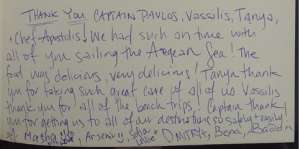 THANK YOU CAPTAIN PAVLOS, Vassilis, Tanya,
& Chef Apostolis! We had such on time with
all of you sailing the Aegean Sea! The
food was delicious, very delicious! Tanya thank
you for taking such great care of all of us Vassilis
thank you for all of the beach trips, Captain thank
you for getting us to all of our destinations so safely + easily!
Masha Arseniy, DMITRIY, Bena,